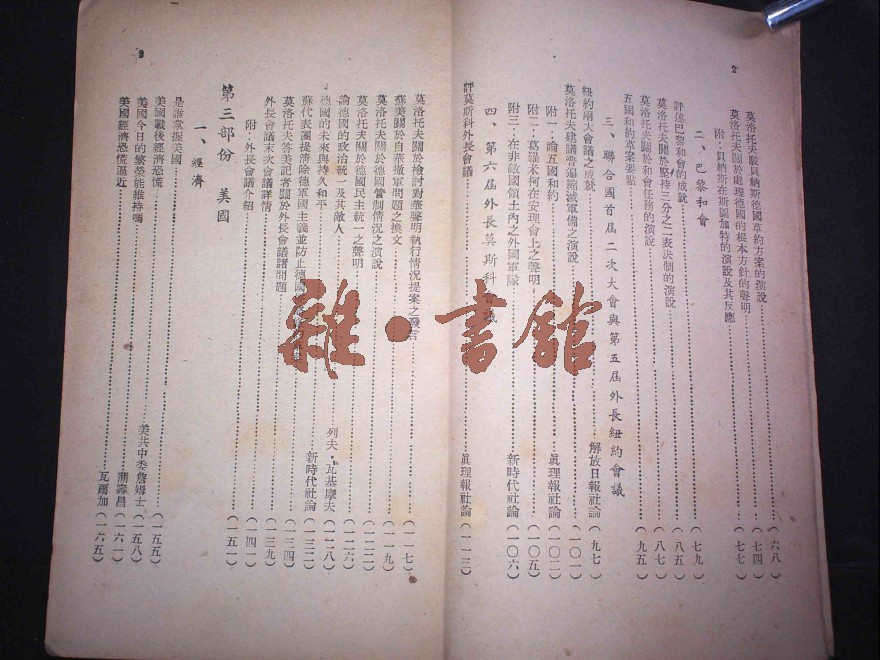 2
莫洛托夫駁貝納斯德國草約方案的演說(六八)
莫洛托夫關於處理德國的根本方針的聲明(七四)
附:貝納斯在斯圖加特的演說及其反應(七七)
二、巴黎和會
評述巴黎和會的成就(七九)
莫洛托夫關於堅持三分之二表決制的演說(八五)
莫洛托夫關於和會任務的演說(八七)
五國和約草案要點(九五)
三、聯合國首屆二次大會與第五屆外長紐約會議
紐約兩大會議之成就 解放日報社論(九七)
莫洛托夫建議普遍縮減軍備之演說(一〇一)
附一:論五國和約 眞理報社論(一〇二)
附二:葛羅米柯在安理會上之聲明(一〇五)
附三:在非敵國領土內之外國軍隊 新時代社論(一〇六)
四、第六屆外長莫斯科會議
評莫斯科外長會議 眞理報社論(一一三)
3
莫洛托夫關於檢討對華聲明執行情況提案之發言(一一七)
蘇美關於自華撤軍問題之換文(一一九)
莫洛托夫關於德國管制情況之演說(一二二)
莫洛托夫關於德國民主統一之聲明(一二六)
論德國的政治統一及其敵人 列夫·瓦基摩夫(一二八)
德國的未來與持久和平 新時代社論(一三二)
蘇代表團提清除德軍國主義並防止德國
莫洛托夫答美記者關於外長會議諸問題(一三四)
外長會議末次會議詳情(一三九)
附:外長會議介紹(一四一)
第三部份 美國
一、經濟
是誰掌握美國(一五一)
美國戰後經濟恐慌(一五五)
美國今日的繁榮能維持嗎 美共中委詹姆士(一五八)
美國經濟恐慌逼近 蒲壽昌(一六一)
瓦爾加(一六五)
雜·書館